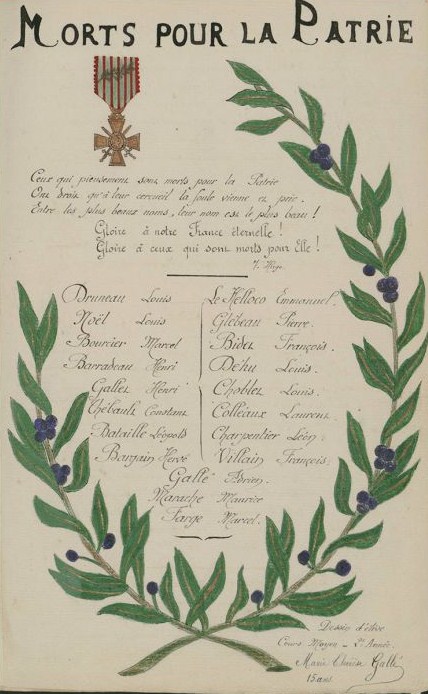 MORTS POUR LA PATRIE
Ceux qui pieusement sont morts pour la Patrie
Ont droit qu'à leur cercueil la foule vienne et prie.
Entre les plus beaux noms, leur nom est le plus beau !
Gloire à notre France éternelle !
Gloire à ceux qui sont morts pour elle !
V. Hugo
Bruneau Louis
Noël Louis
Bourcier Marcel
Barradeau Henri
Gallet Henri
Thébault Constant
Bataille Léopold
Bargain Hervé
Le Helloco Emmanuel.
Glébeau Pierre.
Bidet François.
Déhu Louis.
Choblet Louis.
Colléaux Laurent
Charpentier Léon.
Villain François.
Gallé Adrien.
Marache Maurice
Farge Marcel.
Dessin d'élève
Cours Moyen - 1re Année.
Marie Thérèse Gallé
13 ans